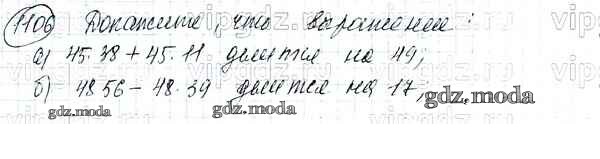 1106 Докажите, что выражение:
а) 45·38 + 45·11 делится на 49;
б) 48·56 - 48·39 делится на 17;
gdz.moda gdz.moda gdz.moda